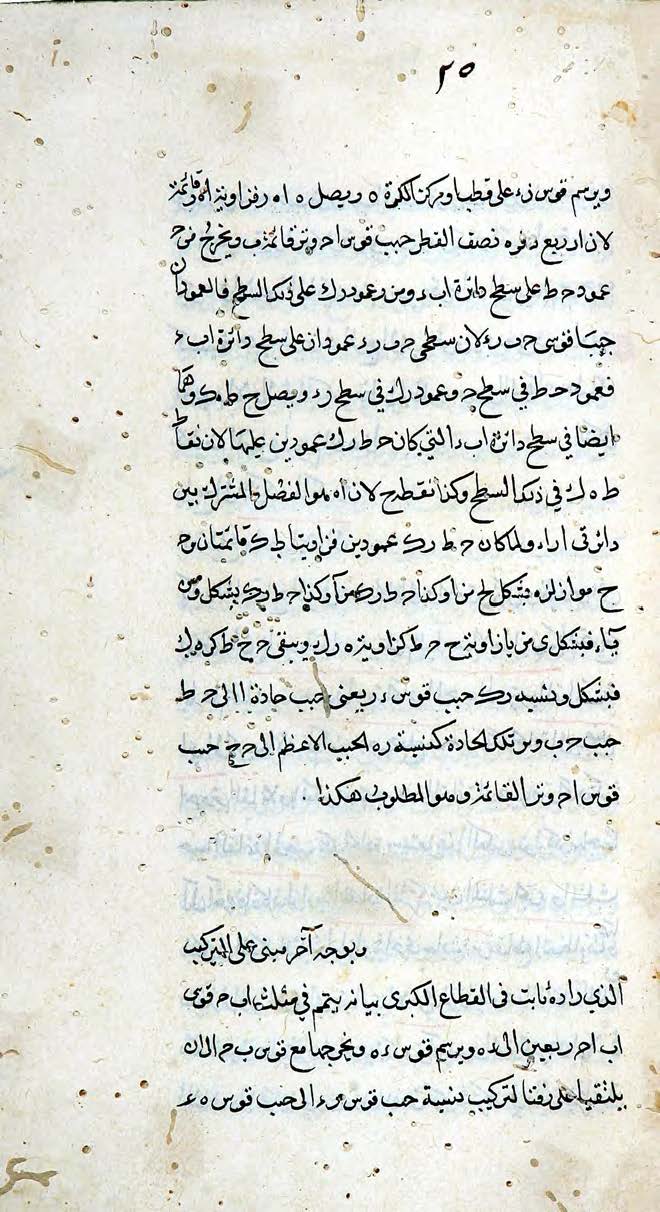 ٢٥
ويرسم قوس زء على قطب ا ومركز الكرة ه ويصل ه ا ه ر فزاوية ا ه ر قائمة
لان ا ر ربع دوره نصف القطر جيب قوس ا ح وتر قائمة ب ويخرج من ح
عمود ح ط على سطح دائرة ا ب ء ومن ر عمود رك على ذلك السطح فالعمودان
جيبا قوسى ح ب ر ء لان سطحى ح ب ر ء عمودان على سطح دائرة ا ب ء
فعمود ح ط في سطح ح ب وعمود رك في سطح ر ء ويصل ح ط ه ك وهما
ايضا في سطح دائرة ا ب ء التي كان ح ط رك عمودين عليها لان نقاط
ط ه ك في ذلك السطح وكذا نقطة ح لان ا ه هو الفصل المشترك بين
دائرتى ا ر ا ء ولما كان ح ط رك عمودين فزاويتا ط ك قائمتان و ح
ح مواز لره بشكل من ا وكذا ح ط رك من ا وكذا ح ط رك بشكل و من
يا، فبشكل ى من يا زاوية ح ح ط كزاوية ه رك ويبقى ح ح ط كره ك
فبشكل و نسبة رك جيب قوس ء ر يعنى جيب حادة ا الى ح ط
جيب ح ب وتر تلك الحادة كنسبة ره الجيب الاعظم الى ح ح جيب
قوس ا ح وتر القائمة وهو المطلوب هكذا
وبوجه آخر مبنى على التركيب
الذي زاده ثابت فى القطاع الكبرى بيانه يتمم في مثلث ا ب ح قوسى
ا ب ا ح ربعين الى ء ه ويرسم قوس ء ه ونخرجها مع قوس ب ح الى ان
يلتقيا على ر فبالتركيب نسبة جيب قوس ء الى جيب قوس ه ء